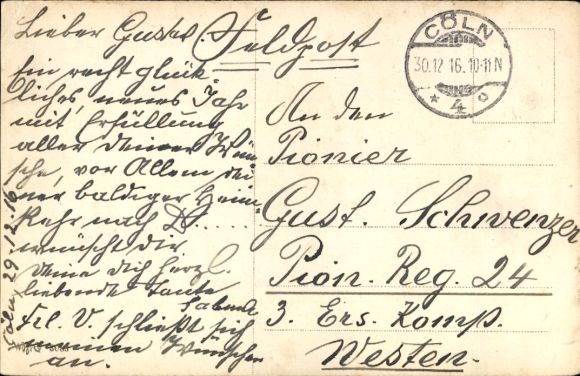 Lieber Gustel.
Feldpost
CÖLN
30.12 16.10-11N
* 4 o
Ein recht glück-
liches, neues Jahr
mit Erfüllung
aller deiner Wün-
sche, vor Allem dei-
ner baldiger Heim-
kehr nach D.....
wünscht dir
deine dich herzl.
liebende Tante
Frl. V. schließt sich
meinen Wünschen
an.
Cöln, 29.12.16
An den
Pionier
Gust. Schwenzer
Pion. Reg. 24
3. Ers. Komp.
Westen.